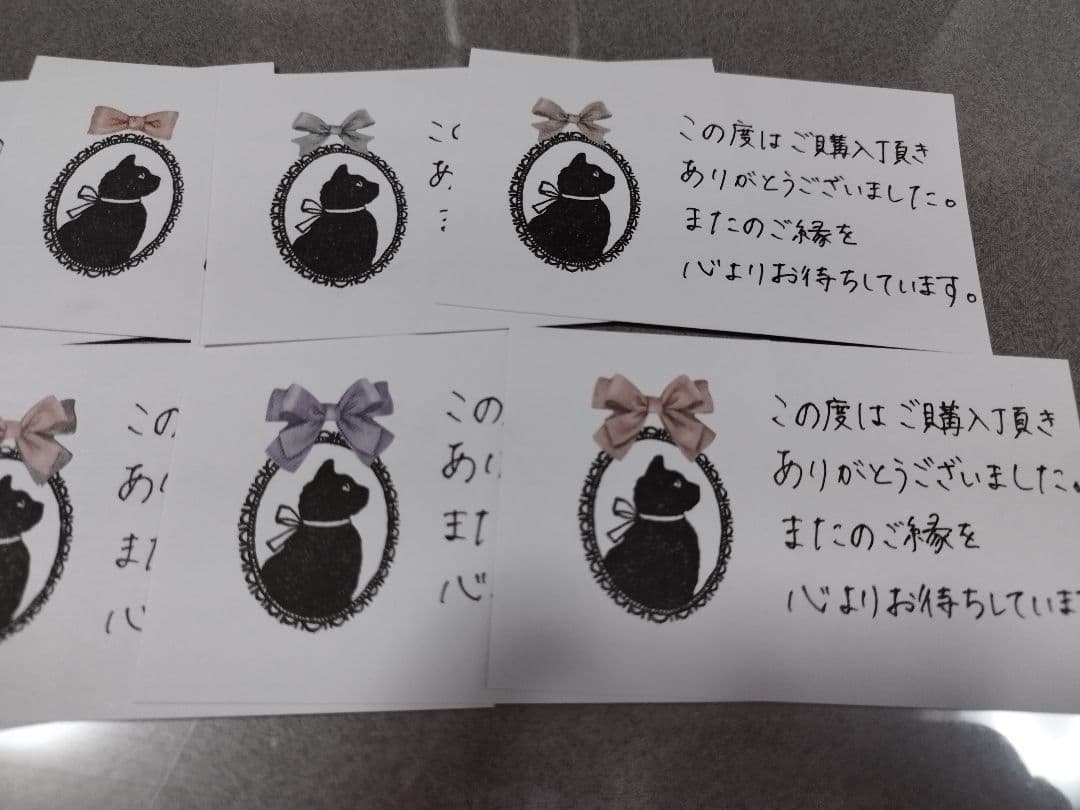 こ
あ
この度はご購入頂き
ありがとうございました。
またのご縁を
心よりお待ちしています。
この
あ
また
心
この
あり
また
心よ
この度はご購入頂き
ありがとうございました。
またのご縁を
心よりお待ちしていま